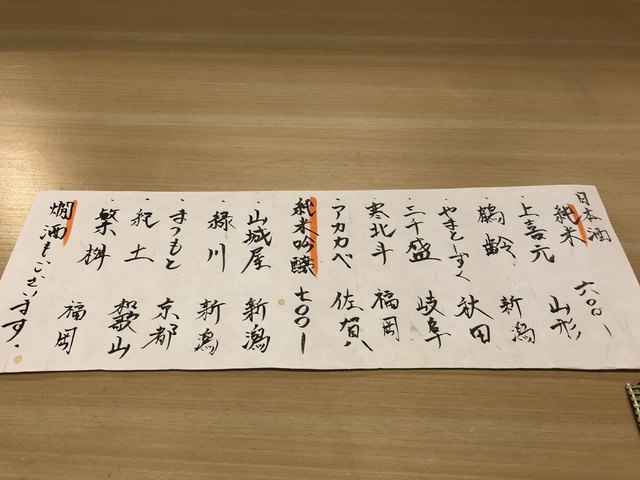 日本酒
純米 六〇〇ー
・上喜元 山形
・鶴齢 新潟
・やまとしずく 秋田
・三千盛 岐阜
・寒北斗 福岡
・アカカベ 佐賀
純米吟醸 七〇〇ー
・山城屋 新潟
・緑川 新潟
・まつもと 京都
・紀土 和歌山
・繁桝 福岡
燗酒もございます。